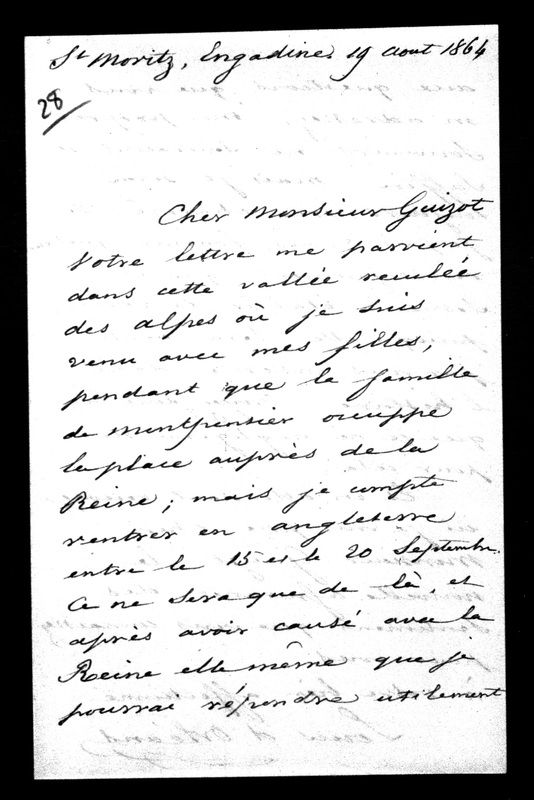 St Moritz, Engadine 19 aout 1864
28
Cher Monsieur Guizot
Votre lettre me parvient
dans cette vallée reculée
des alpes où je suis
venu avec mes filles,
pendant que la famille
de Montpensier occuppe
la place auprès de la
Reine; mais je compte
rentrer en angleterre
entre le 15 et le 20 Septembre.
Ce ne sera que de là, et
après avoir causé avec la
Reine elle même que je
pourrai répondre utilement